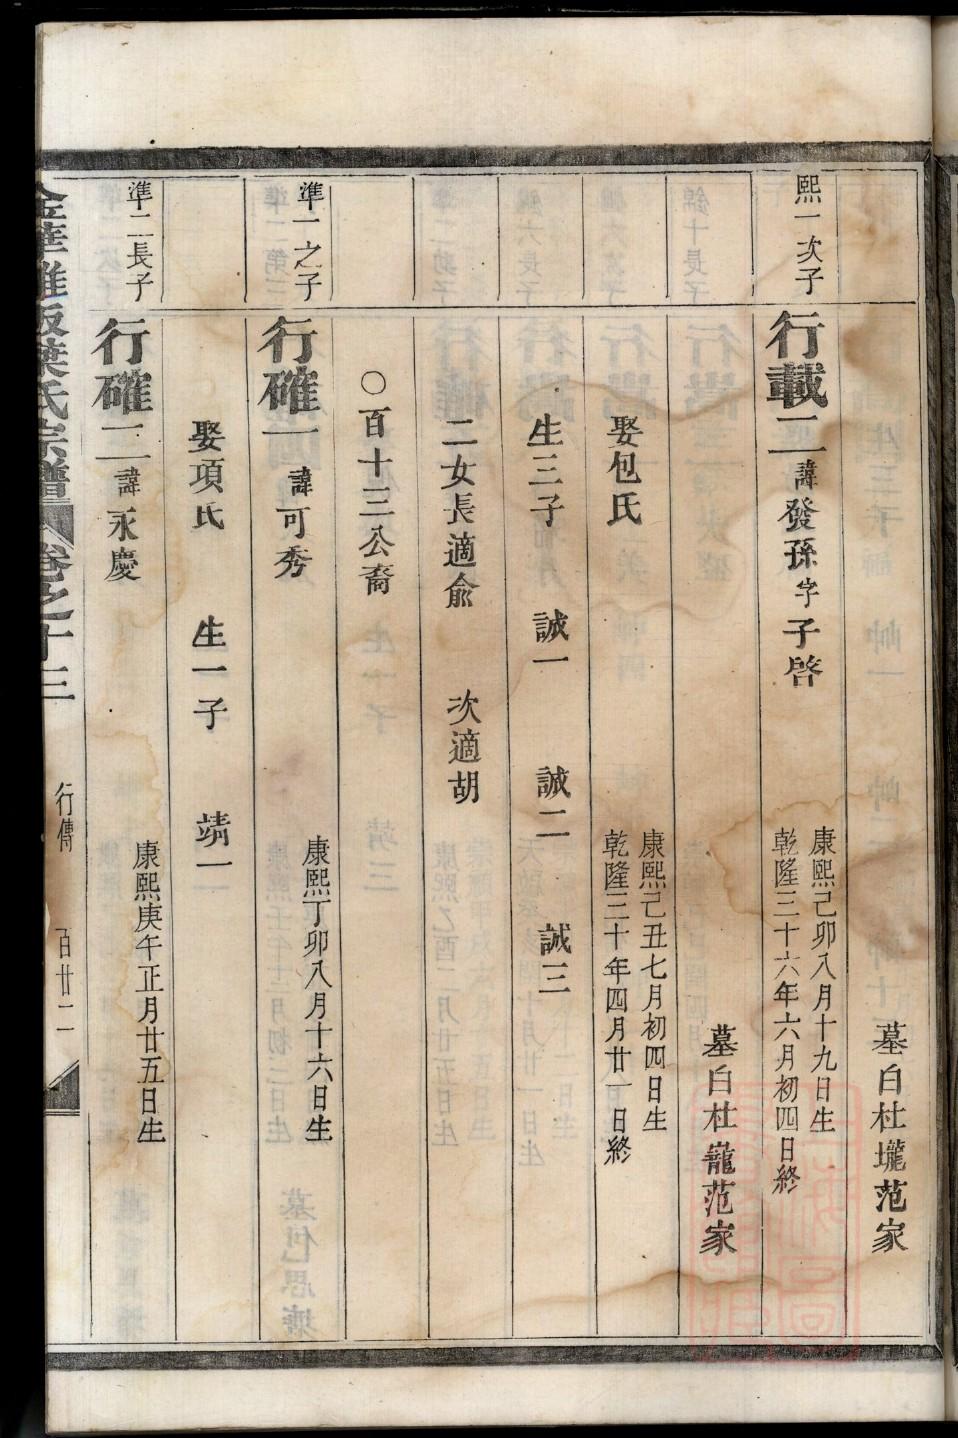 墓白杜壠范家
熙一次子
行載二 諱發孫 字子啓
康熙己卯八月十九日生
乾隆三十六年六月初四日終
墓白杜巃范家
娶包氏
康熙己丑七月初四日生
乾隆三十年四月廿一日終
生三子 誠一 誠二 誠三
二女長適俞 次適胡
○百十三公裔
準一之子
行確一 諱可秀
康熙丁卯八月十六日生
娶項氏 生一子 靖一
準二長子
行確二 諱永慶
康熙庚午正月廿五日生
葉氏宗譜 卷之十三 行傳 百廿二